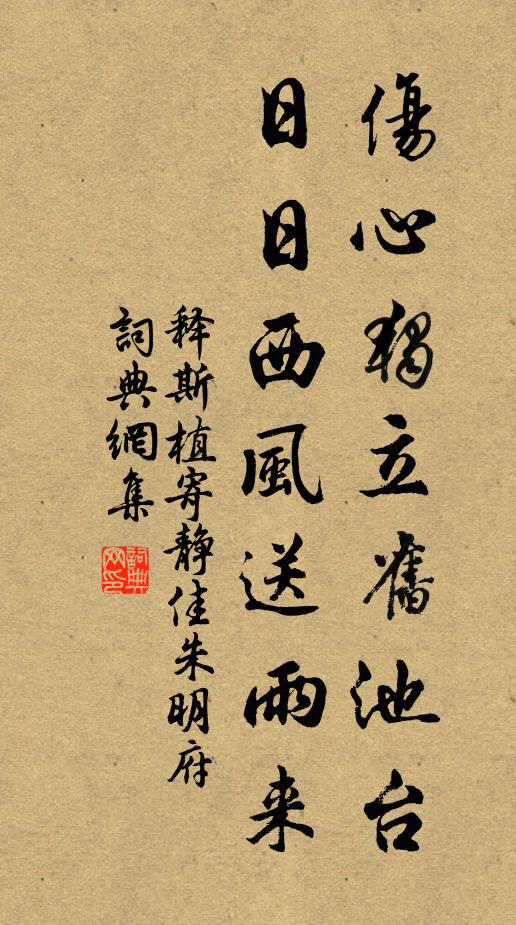 傷心獨立舊池台
日日西風送雨来
释斯植寄静佳朱明府
詞典網集
詞典網印